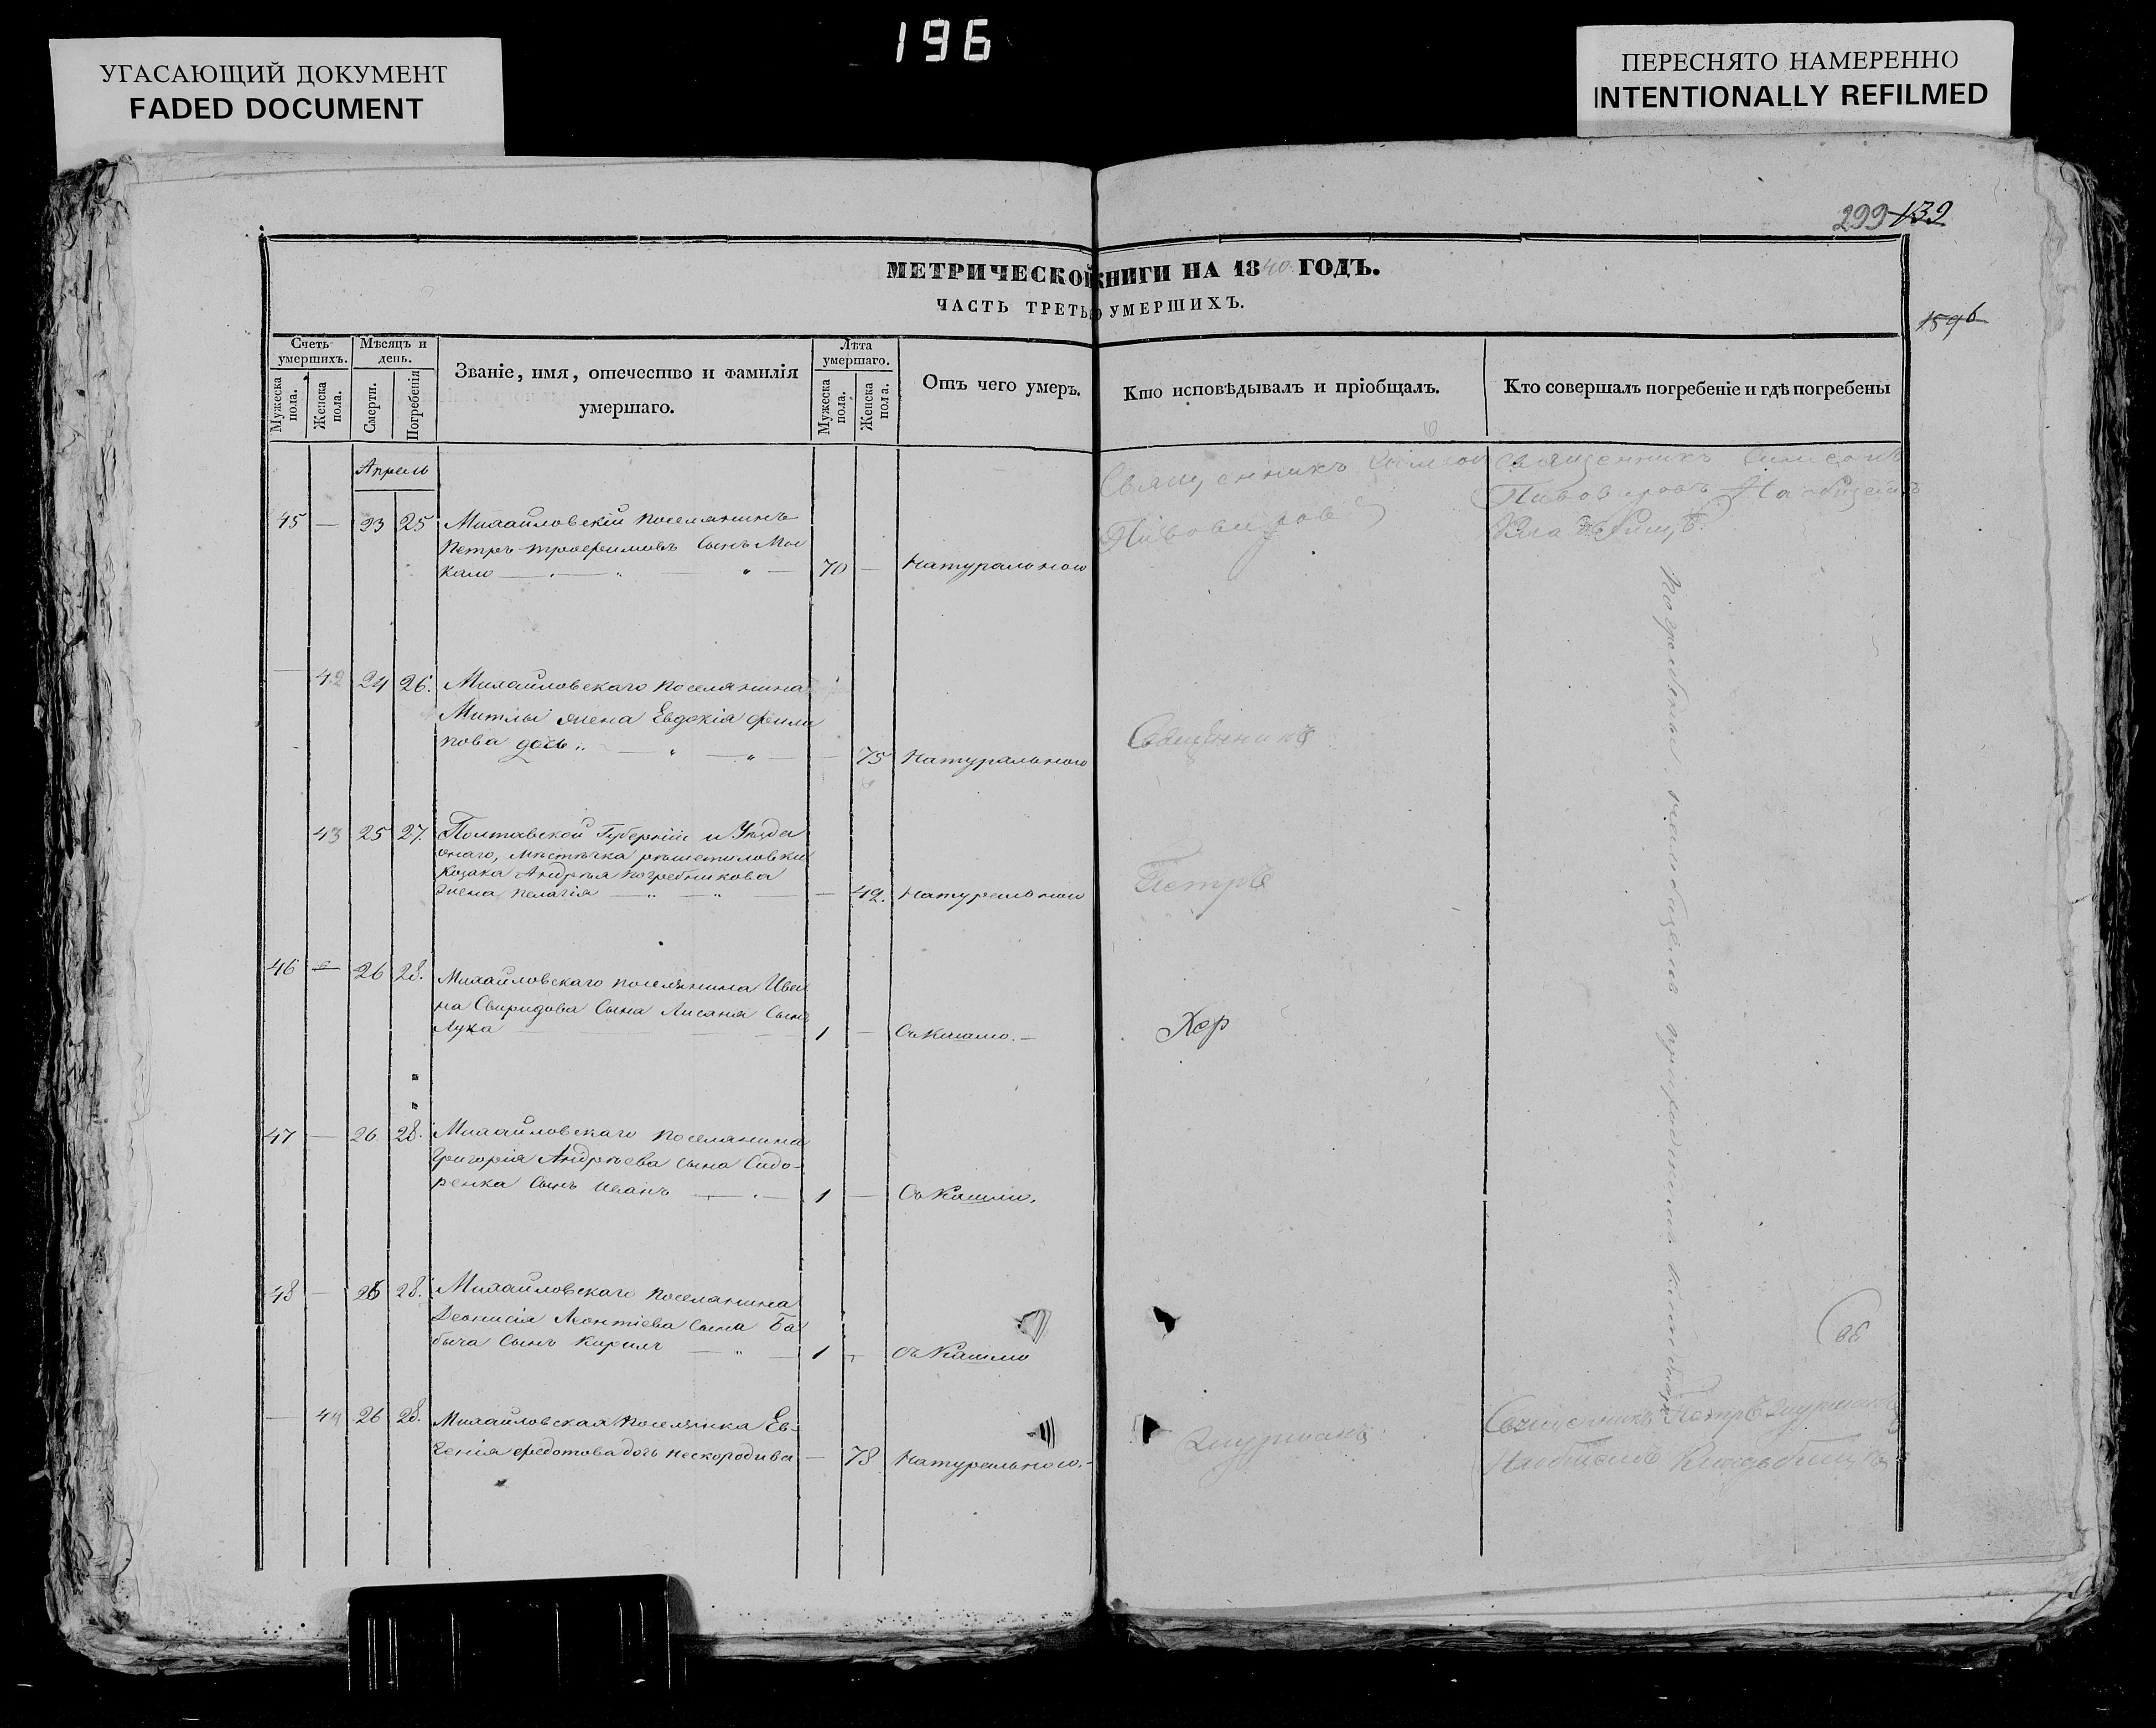 196
УГАСАЮЩИЙ ДОКУМЕНТ
FADED DOCUMENT
ПЕРЕСНЯТО НАМЕРЕННО
INTENTIONALLY REFILMED
299 132
МЕТРИЧЕСКОЙ КНИГИ НА 1840 ГОДЪ.
ЧАСТЬ ТРЕТЬЯ УМЕРШИХЪ.
Счетъ умершихъ.
Мужеска пола.
Женска пола.
Мѣсяцъ и день.
Смерти.
Погребенія
Званіе, имя, отечество и фамилія умершаго.
Лѣта умершаго.
Мужеска пола.
Женска пола.
Отъ чего умеръ.
Кто исповѣдывалъ и пріобщалъ.
Кто совершалъ погребеніе и гдѣ погребены
Апрель
45 — 23 25 Михайловскій поселянинъ
Петръ Трофимовъ Сынъ Мо
кало — 70 — Натурального
Священникъ Симеон
Пивоваровъ
Священникъ Симеонъ
Пивоваровъ На общемъ
Кладбищѣ
— 42 24 26. Михайловскаго поселянина
Митлы жена Евдокія Фили
пова дочь — 75 Натурального
Священникъ
43 25 27. Полтавской Губерніи и Уезда
онаго, мѣстечка решетиловки
Козака Андрея Погребникова
жена Пелагія — 42. Натурального
Петръ
46 — 26 28. Михайловскаго поселянина Ива
на Свиридова Сына Лисаня Сынъ
Лука 1 — Съ Кашлю. —
Жер
47 — 26 28. Михайловскаго поселянина
Григорія Андреева сына Сидо-
ренка Сынъ Иванъ 1 — Съ Кашлю.
48 — 26 28. Михайловскаго поселянина
Деонисія Леонтіева сына Ба
быча Сынъ Кирилъ 1 Съ Кашлю
— 44 26 28. Михайловская поселянка Ев-
генія Федотова дочь Нескородива — 78 Натурального. —
Священникъ Петръ
На общемъ Кладбищѣ